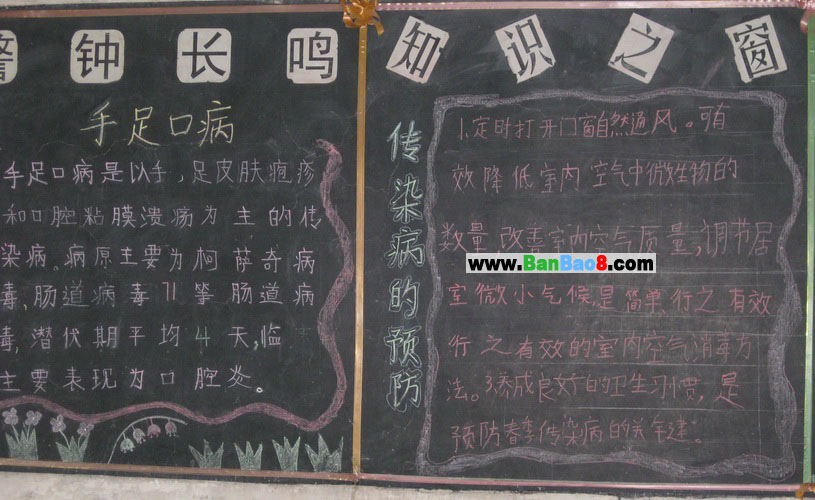 警钟长鸣
手足口病
手足口病是以手,足皮肤疱疹
和口腔粘膜溃疡为主的传
染病。病原主要为柯萨奇病
毒,肠道病毒71等肠道病
毒,潜伏期平均4天,临
主要表现为口腔炎。
知识之窗
传染病的预防
1.定时打开门窗自然通风。可有
效降低室内空气中微生物的
数量,改善室内空气质量,调节居
室微小气候,是简单,行之有效
行之有效的室内空气消毒方
法。3养成良好的卫生习惯,是
预防春季传染病的关键。
www.BanBao8.com